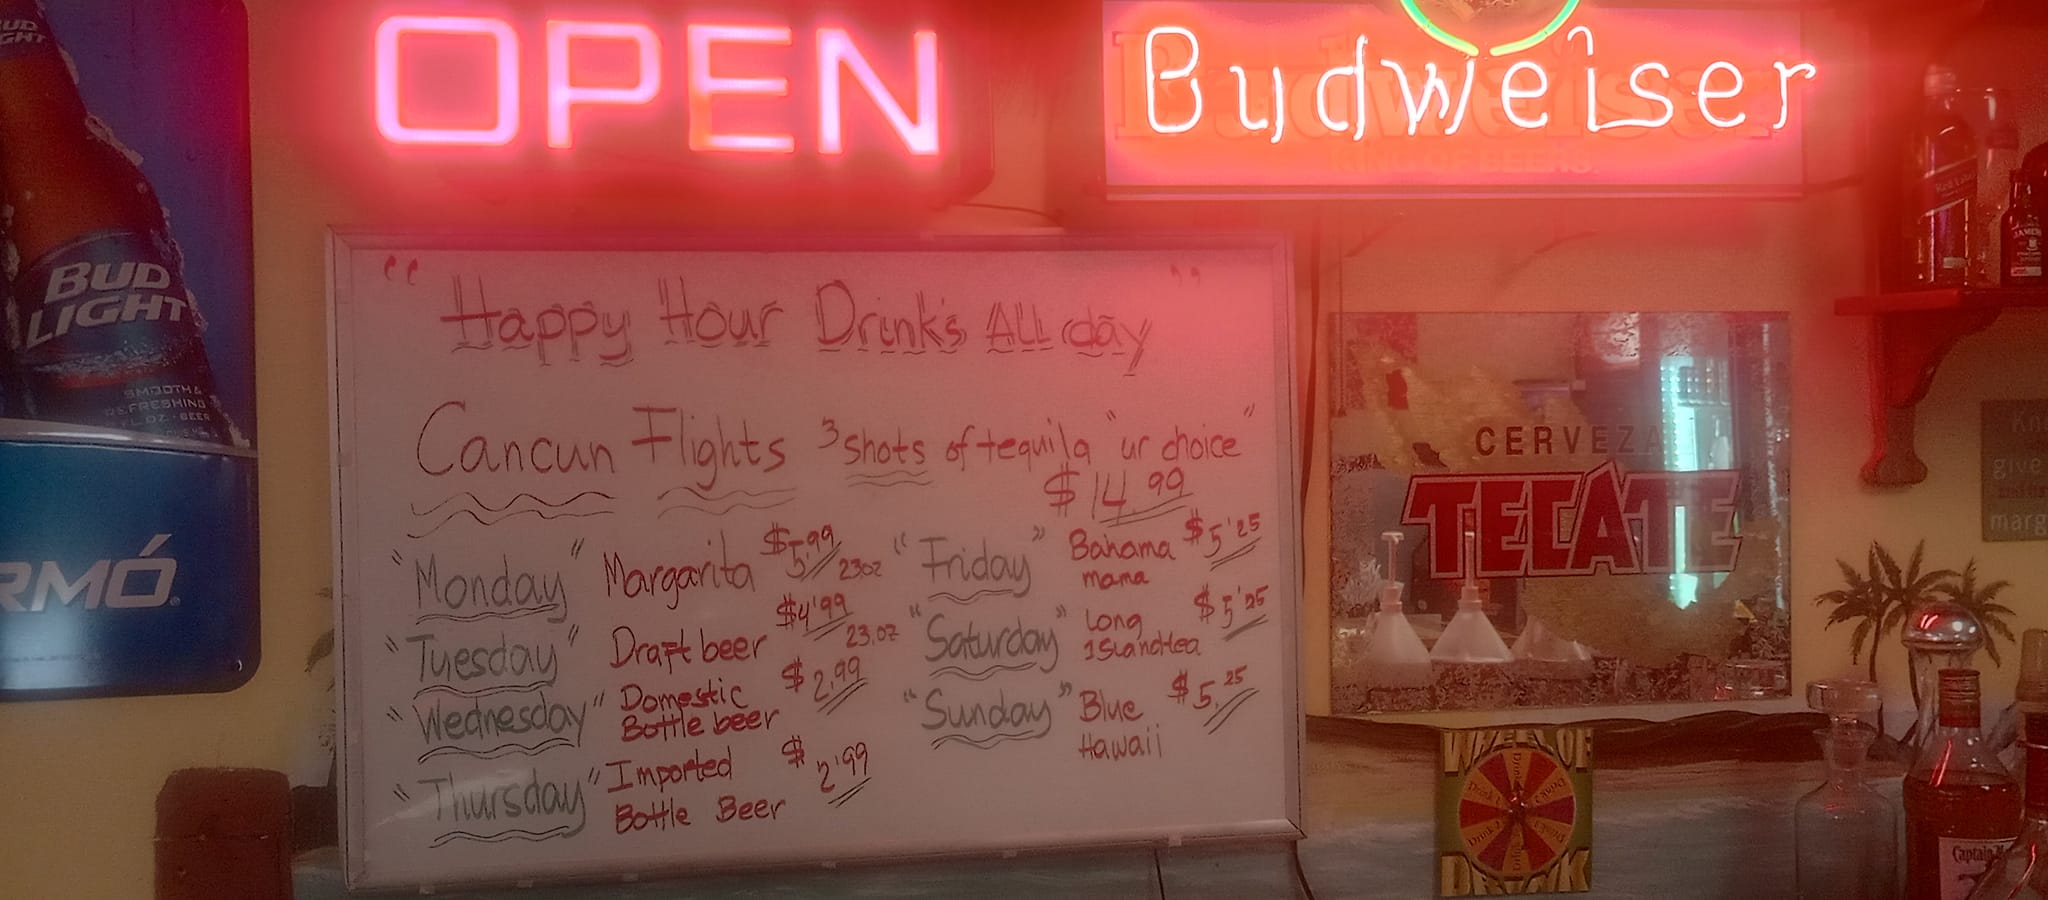 OPEN
Budweiser
KING OF BEERS
BUD
LIGHT
SMOOTH &
REFRESHING
FL.OZ. BEER
RMÓ
" Happy Hour Drink's ALL day "
Cancun Flights 3 shots of tequila "ur choice"
$14.99
"Monday" Margarita $5'99 23oz
"Tuesday" Draft beer $4'99 23.oz
"Wednesday" Domestic Bottle beer $2.99
"Thursday" Imported Bottle Beer $2'99
"Friday" Bahama mama $5'25
"Saturday" Long Islandtea $5'25
"Sunday" Blue Hawaii $5.25
CERVEZA
TECATE
give
marg
WHEEL OF
DRINK
Captain